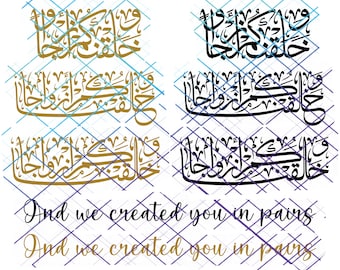 وخلقنكم أزواجا وخلقنكم أزواجا
وخلقنكم أزواجا وخلقنكم أزواجا
وخلقنكم أزواجا وخلقنكم أزواجا
And we created you in pairs
And we created you in pairs